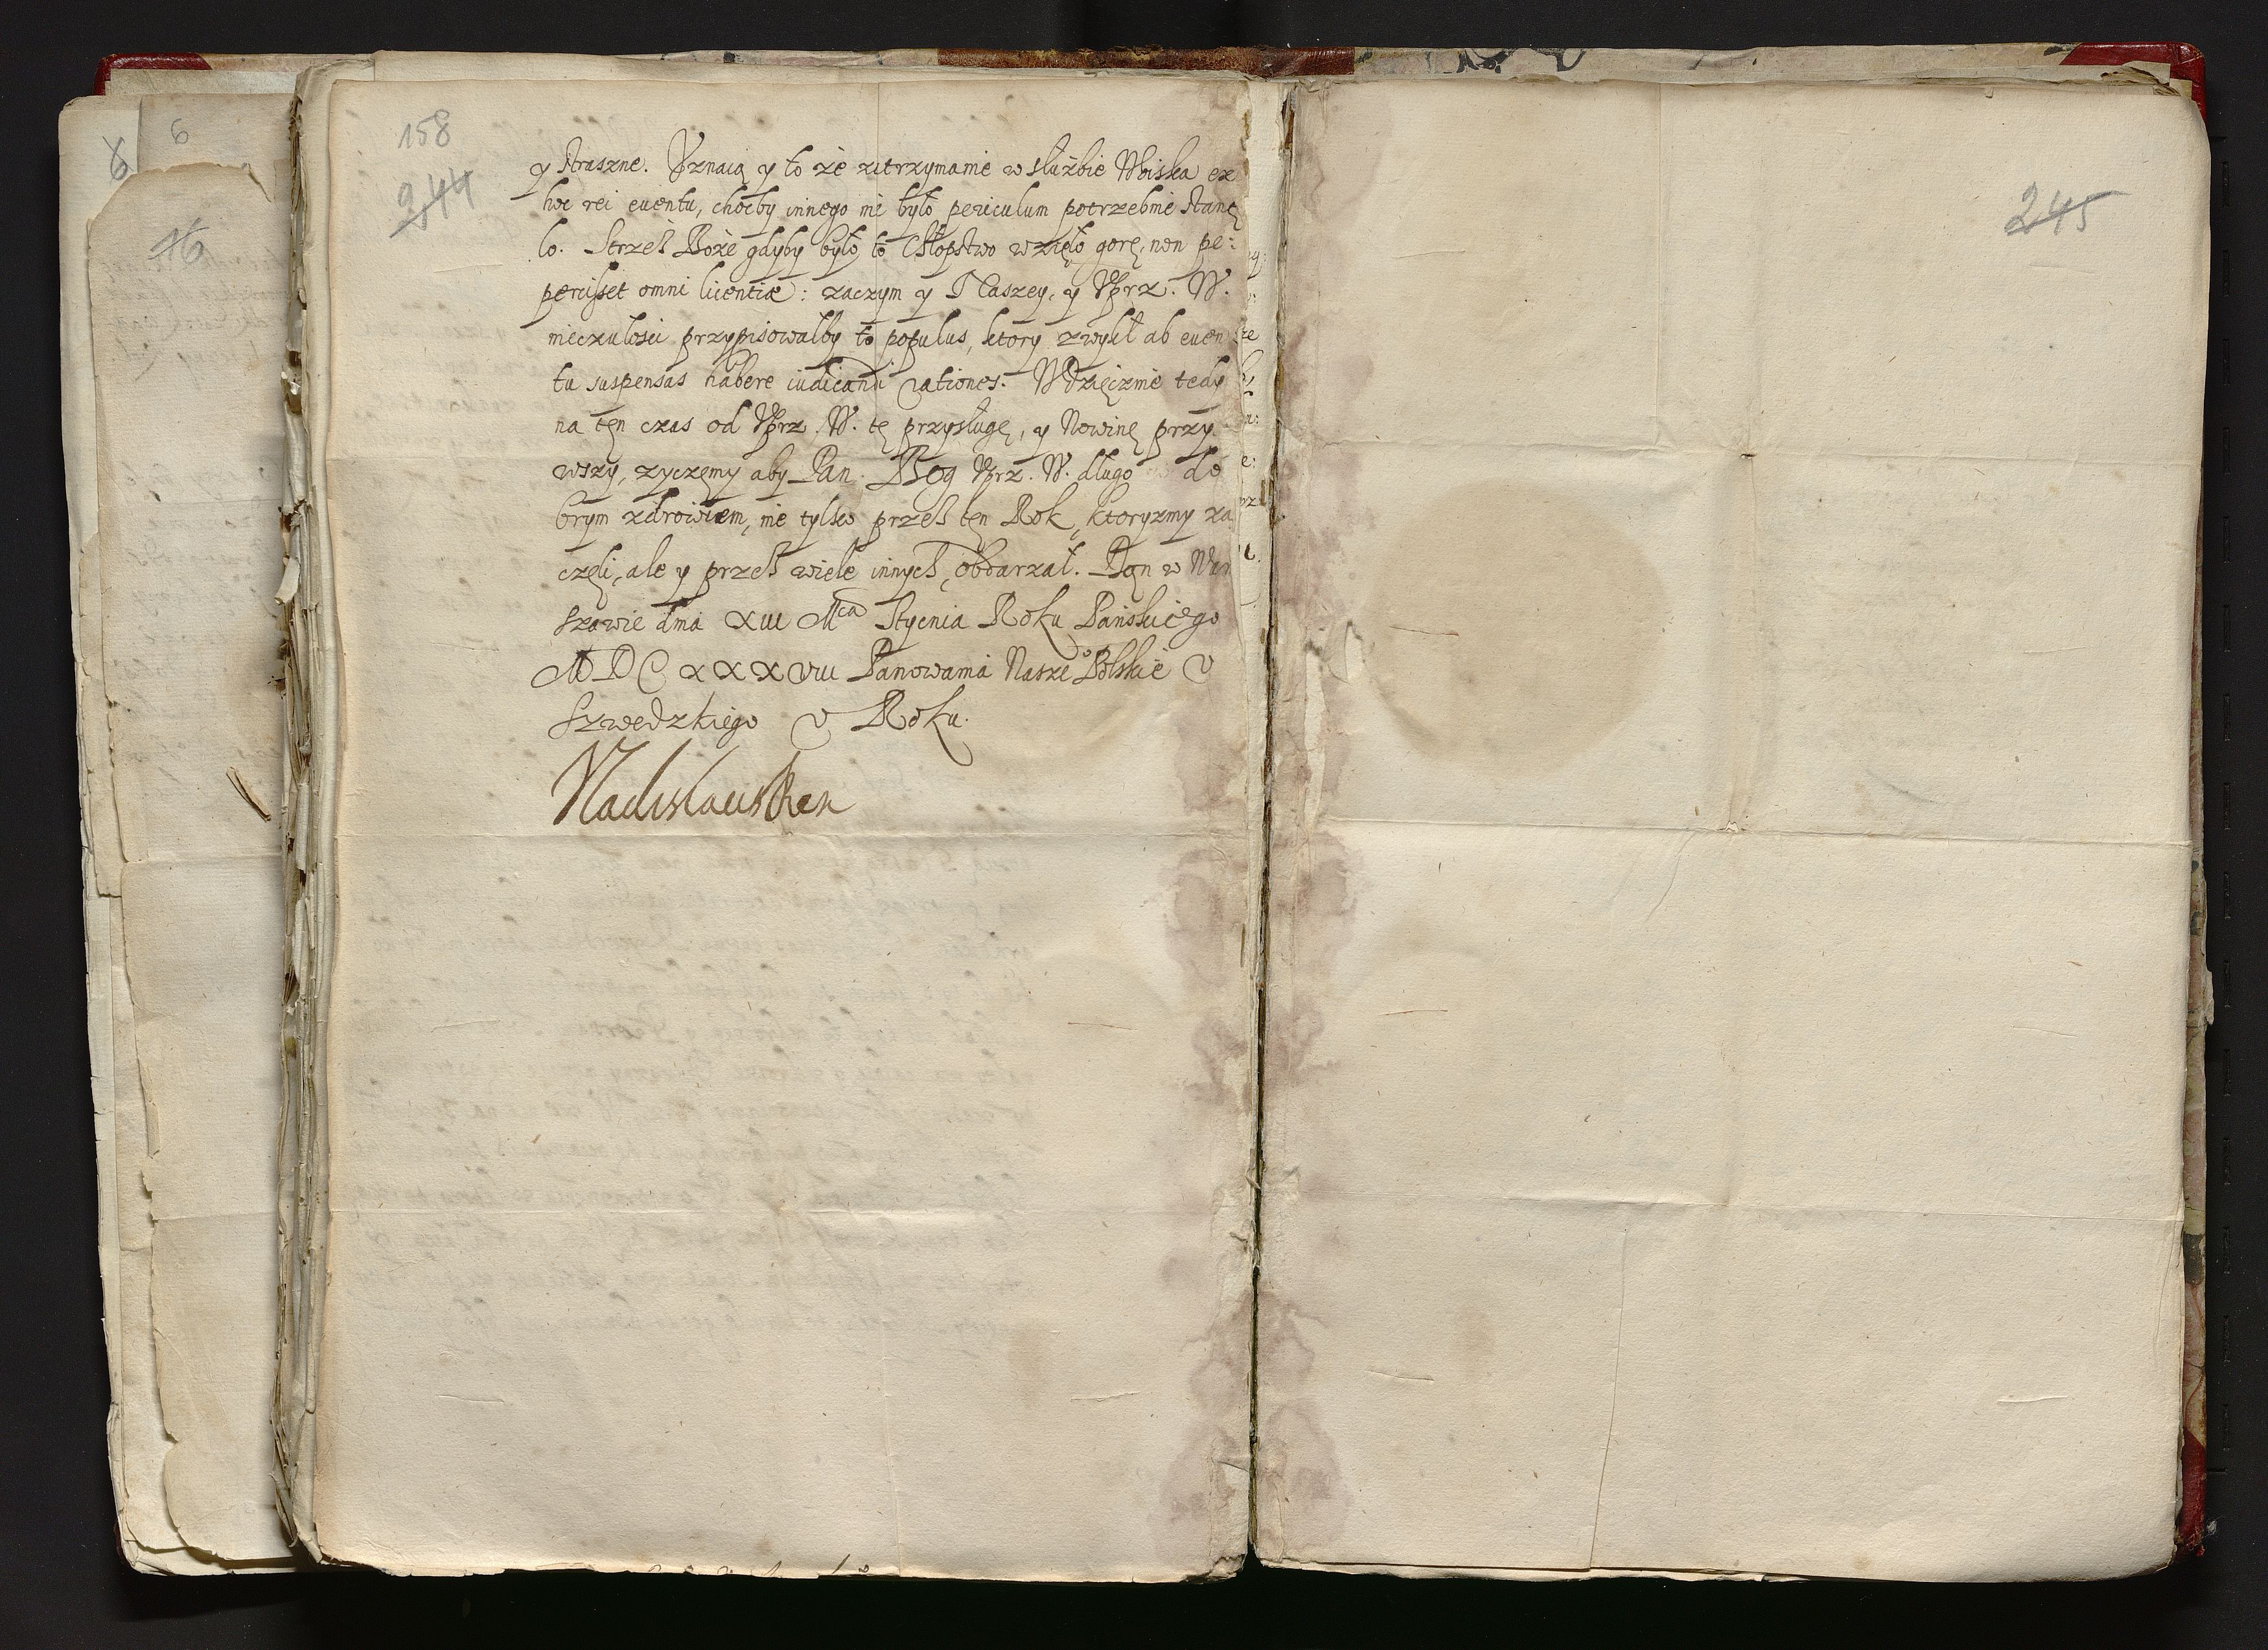 158
244
y straszne. Uznaią y to że zatrzymanie w służbie Woiska ex
hoc rei euentu, choćby innego nie było periculum potrzebnie stanę
ło. Strzeż Boże gdyby było to Chłopstwo wzięło gorę, non pe:
percisset omni licentiæ: zaczym y Naszey, y Uprz. W.
nieczułości przypisowałby to populus, ktory zwykł ab euen
tu suspensas habere iudicandi rationes. Wdzięcznie tedy
na ten czas od Uprz. W. tę przysługę, y Nowinę przy
wszy, zyczemy aby Pan Bog Uprz. W. długo do
brym zdrowiem, nie tylko przez ten Rok, ktorysmy za
częli, ale y przez wiele innych, obdarzał. Dan w War
szawie dnia XIII Mca Stycnia Roku Pańskiego
MDCXXXVIII Panowania Naszeo Polskieo V
Szwedzkiego V Roku.
Vladislaus Rex
245
6
6
16